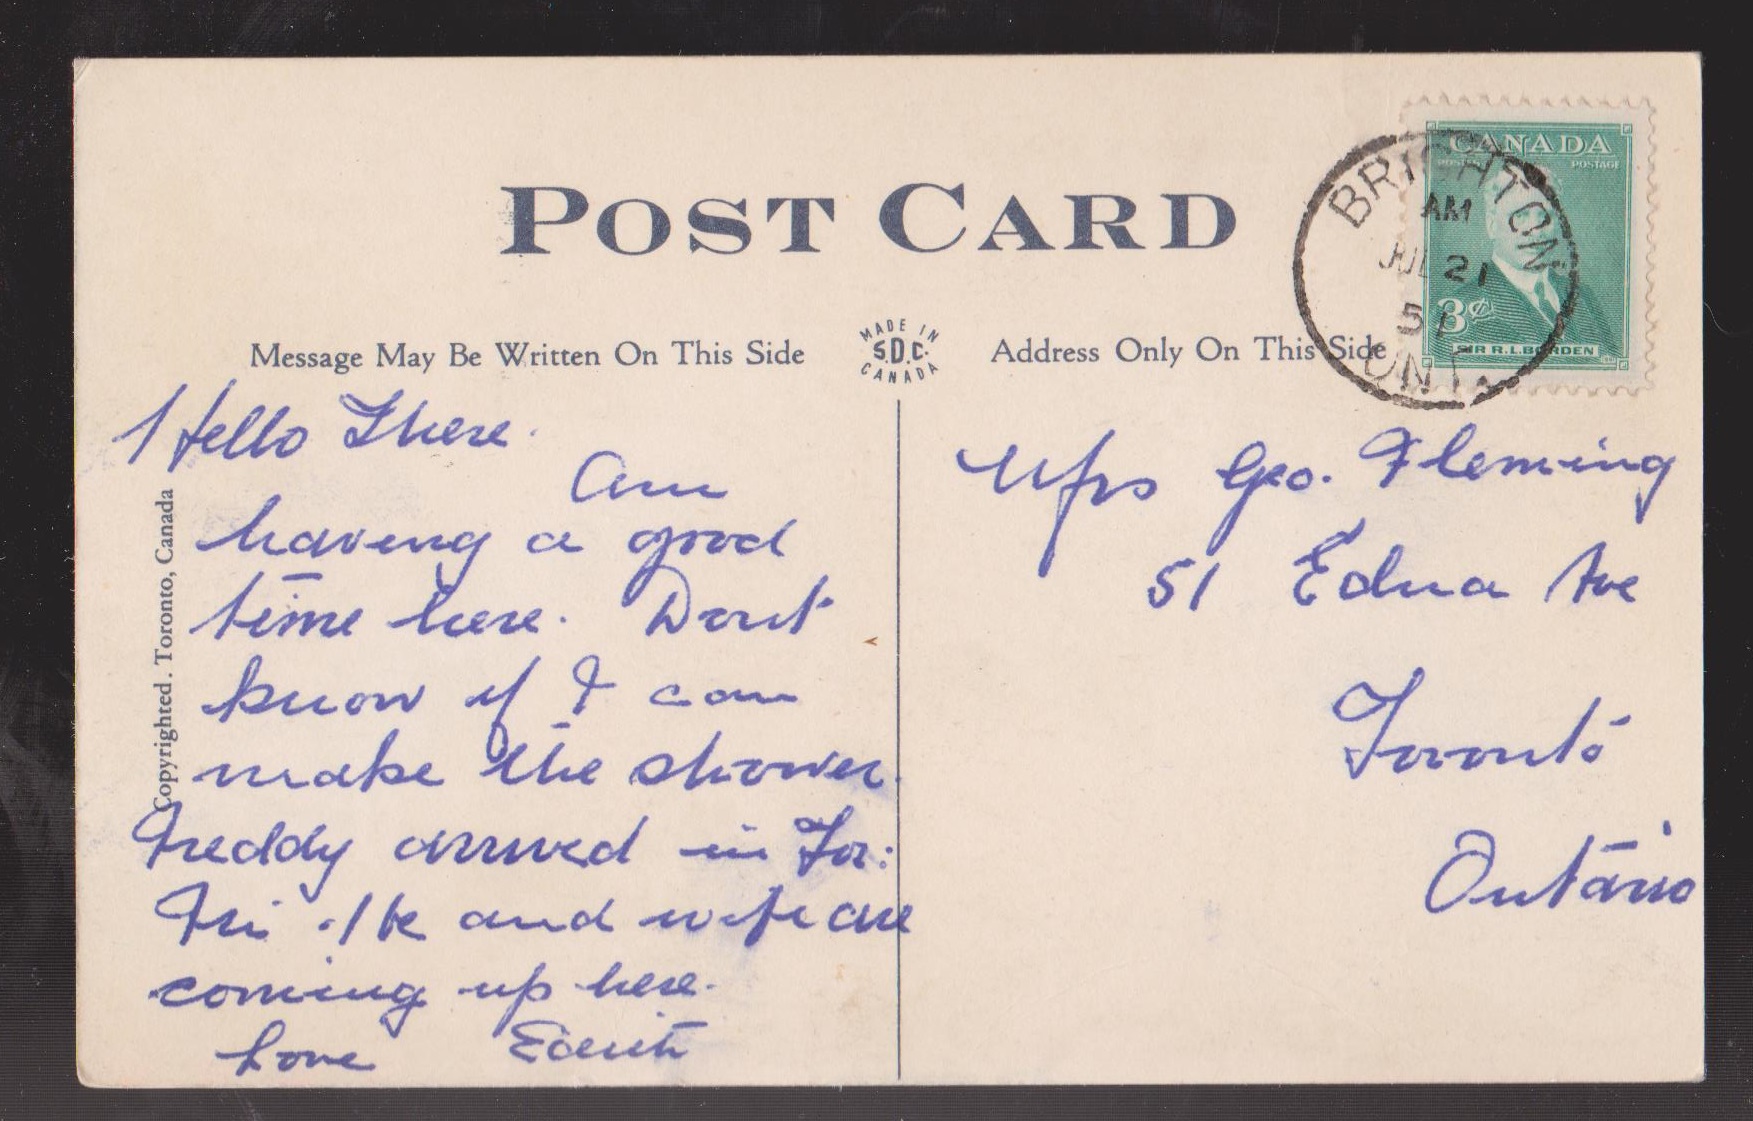 POST CARD
CANADA
POSTES POSTAGE
3¢
SIR R.L. BORDEN
BRIGHTON
AM
JUL 21
51
ONT.
Message May Be Written On This Side
MADE IN
S.D.C.
CANADA
Address Only On This Side
Hello There.
Am
having a good
time here. Don't
know if I can
make the shower.
Freddy arrived in Tor:
Fri. He and wife are
coming up here.
Love Edith
Copyrighted. Toronto, Canada
Mrs Geo. Fleming
51 Edna Ave
Toronto
Ontario